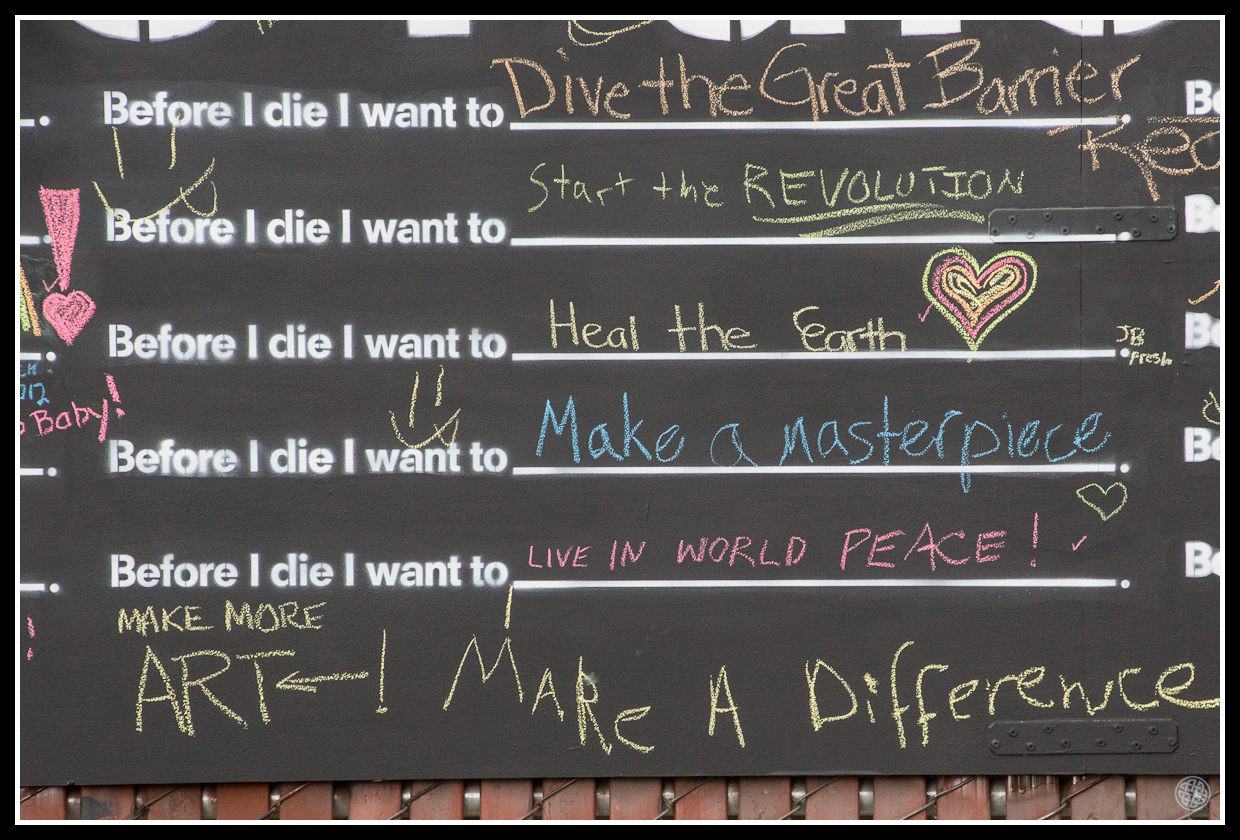 Before I die I want to Dive the Great Barrier
Before I die I want to Start the REVOLUTION
Before I die I want to Heal the Earth
JB
Fresh
Baby!
Before I die I want to Make a masterpiece
Before I die I want to LIVE IN WORLD PEACE!
MAKE MORE
ART
MAke A Difference